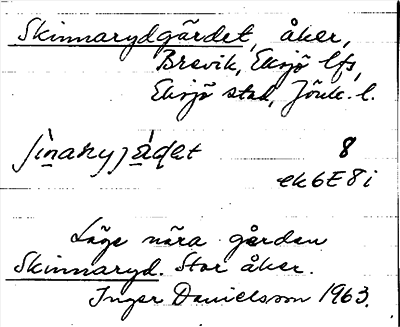 Skinnarydgärdet, åker,
Brevik, Eksjö lfs,
Eksjö stad, Jönk. l.
8
ek 6E8i
Låge nära gården
Skinnaryd. Stor åker.
Inger Danielsson 1963.